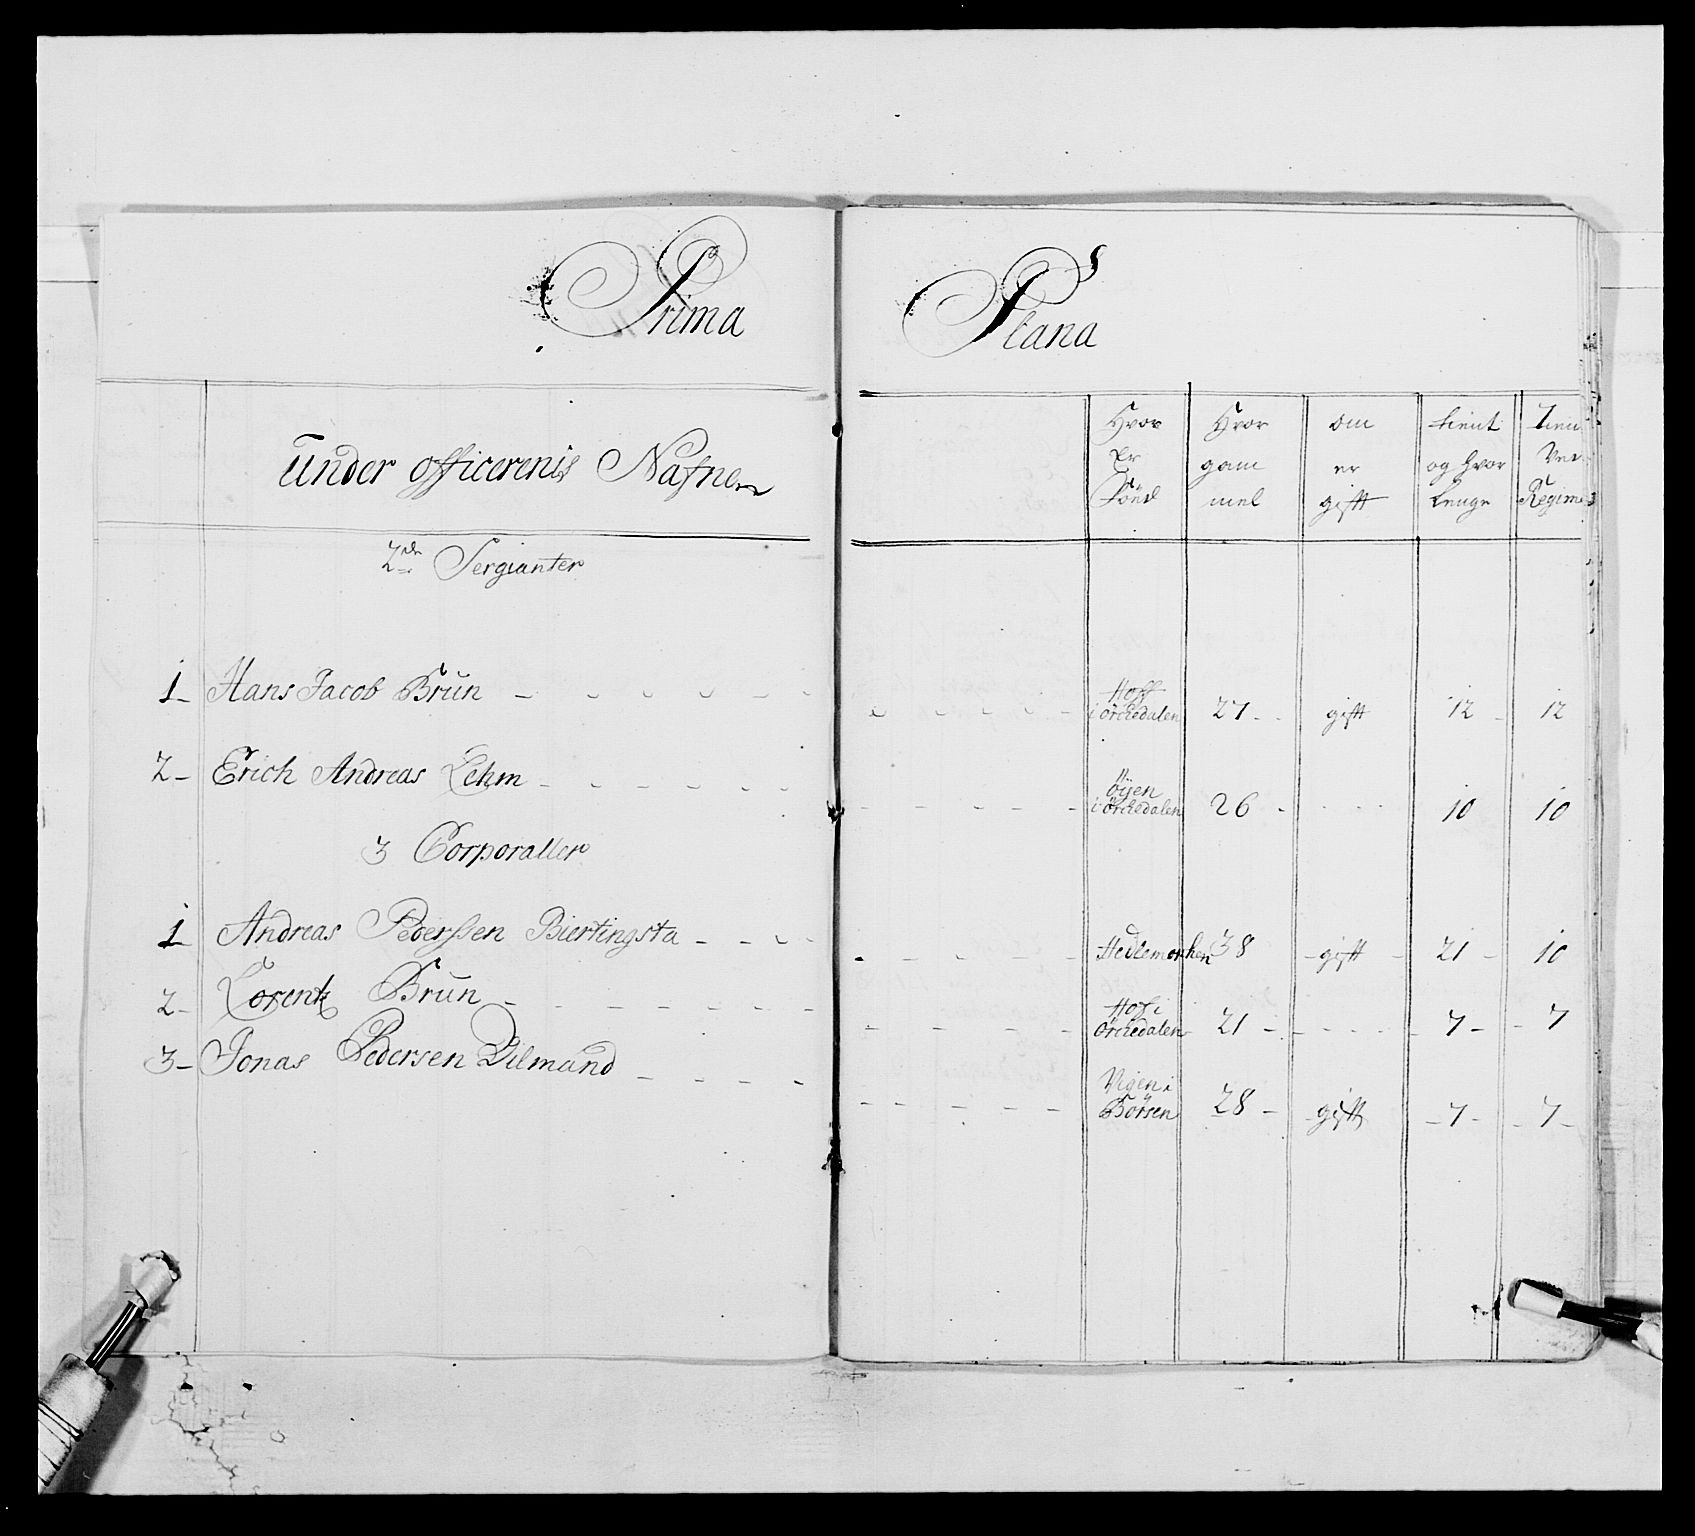 Prima Plana
Under officerenis Nafne
Hvor Er Född
Hvor gam mel
om er gift
tient og hvor lenge
Tien Ved Regime
2de Sergianter
1 - Hans Jacob Brun - Hoff i Örchedalen 27 - gift 12 - 12
2 - Erich Andreas Lehm - Öyen i Örchedalen 26 - 10 10
3 Corporaller
1 Andreas Pederssen Biertingsta - Hedemarken 38 - gift - 21 - 10
2 - Lorentz Brun - Hof i Örchedalen 21 - 7 - 7
3 - Jonas Pedersen Dilmand - Vigen i Börsen 28 - gift - 7 - 7